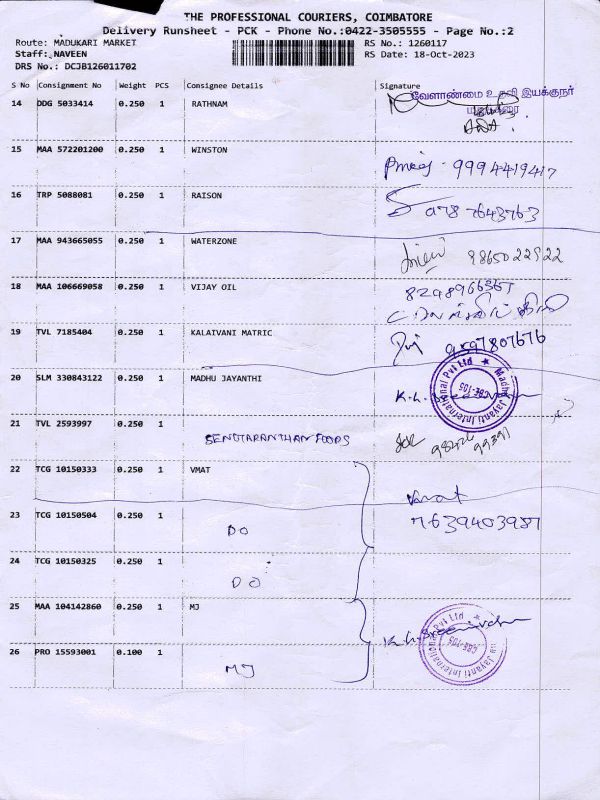 THE PROFESSIONAL COURIERS, COIMBATORE
Delivery Runsheet - PCK - Phone No.:0422-3505555 - Page No.:2
Route: MADUKARI MARKET RS No.: 1260117
Staff: NAVEEN RS Date: 18-Oct-2023
DRS No.: DCJB126011702
S No Consignment No Weight PCS Consignee Details Signature
வேளாண்மை உதவி இயக்குநர்
14 DDG 5033414 0.250 1 RATHNAM
15 MAA 572201200 0.250 1 WINSTON
9994419417
16 TRP 5088081 0.250 1 RAISON
9787643763
17 MAA 943665055 0.250 1 WATERZONE
9865022522
18 MAA 106669058 0.250 1 VIJAY OIL
19 TVL 7185404 0.250 1 KALAIVANI MATRIC
9597807676
20 SLM 330843122 0.250 1 MADHU JAYANTHI
Madhu Jayanti International Pvt Ltd ★
CBE-105
21 TVL 2593997 0.250 1
22 TCG 10150333 0.250 1 VMAT
Vmat
7639403987
23 TCG 10150504 0.250 1 DO
24 TCG 10150325 0.250 1 DO
25 MAA 104142860 0.250 1 MJ
Jayanti International Pvt Ltd ★
CBE-105
26 PRO 15593001 0.100 1 MJ